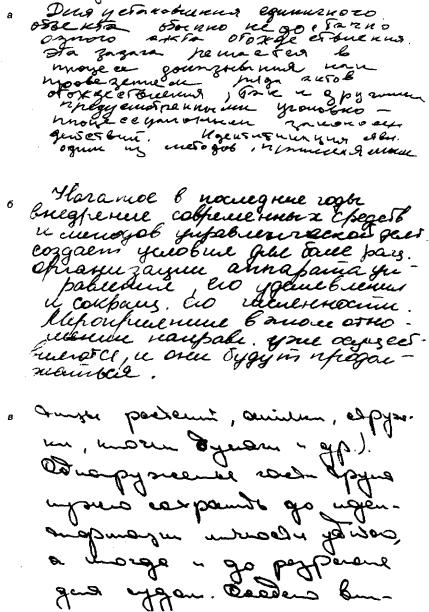 а
Для установления единичного
объекта обычно недостаточно
одного акта отождествления.
Эта задача решается в
процессе доказывания как
проведением ряда актов
отождествления, так и другими
предусмотренными уголовно-
процессуальным законом
действий. Идентификация явл.
один из методов,
б
Начатое в последние годы
внедрение современных средств
и методов управленческой деят.
создает условия для более рац.
организации аппарата уп-
равления, его удешевления
и сокращ. его численности.
Мероприятие в этом отно-
шении направл. уже осущест-
вляются, и они будут продол-
жаться.
в
растений, опилки, струж-
ки, клочки бумаги и др.).
Обнаруженные части трупа
нужно сохранять до иден-
тификации личности убитого,
а иногда и до разрешения
дела судом. Особого вни-